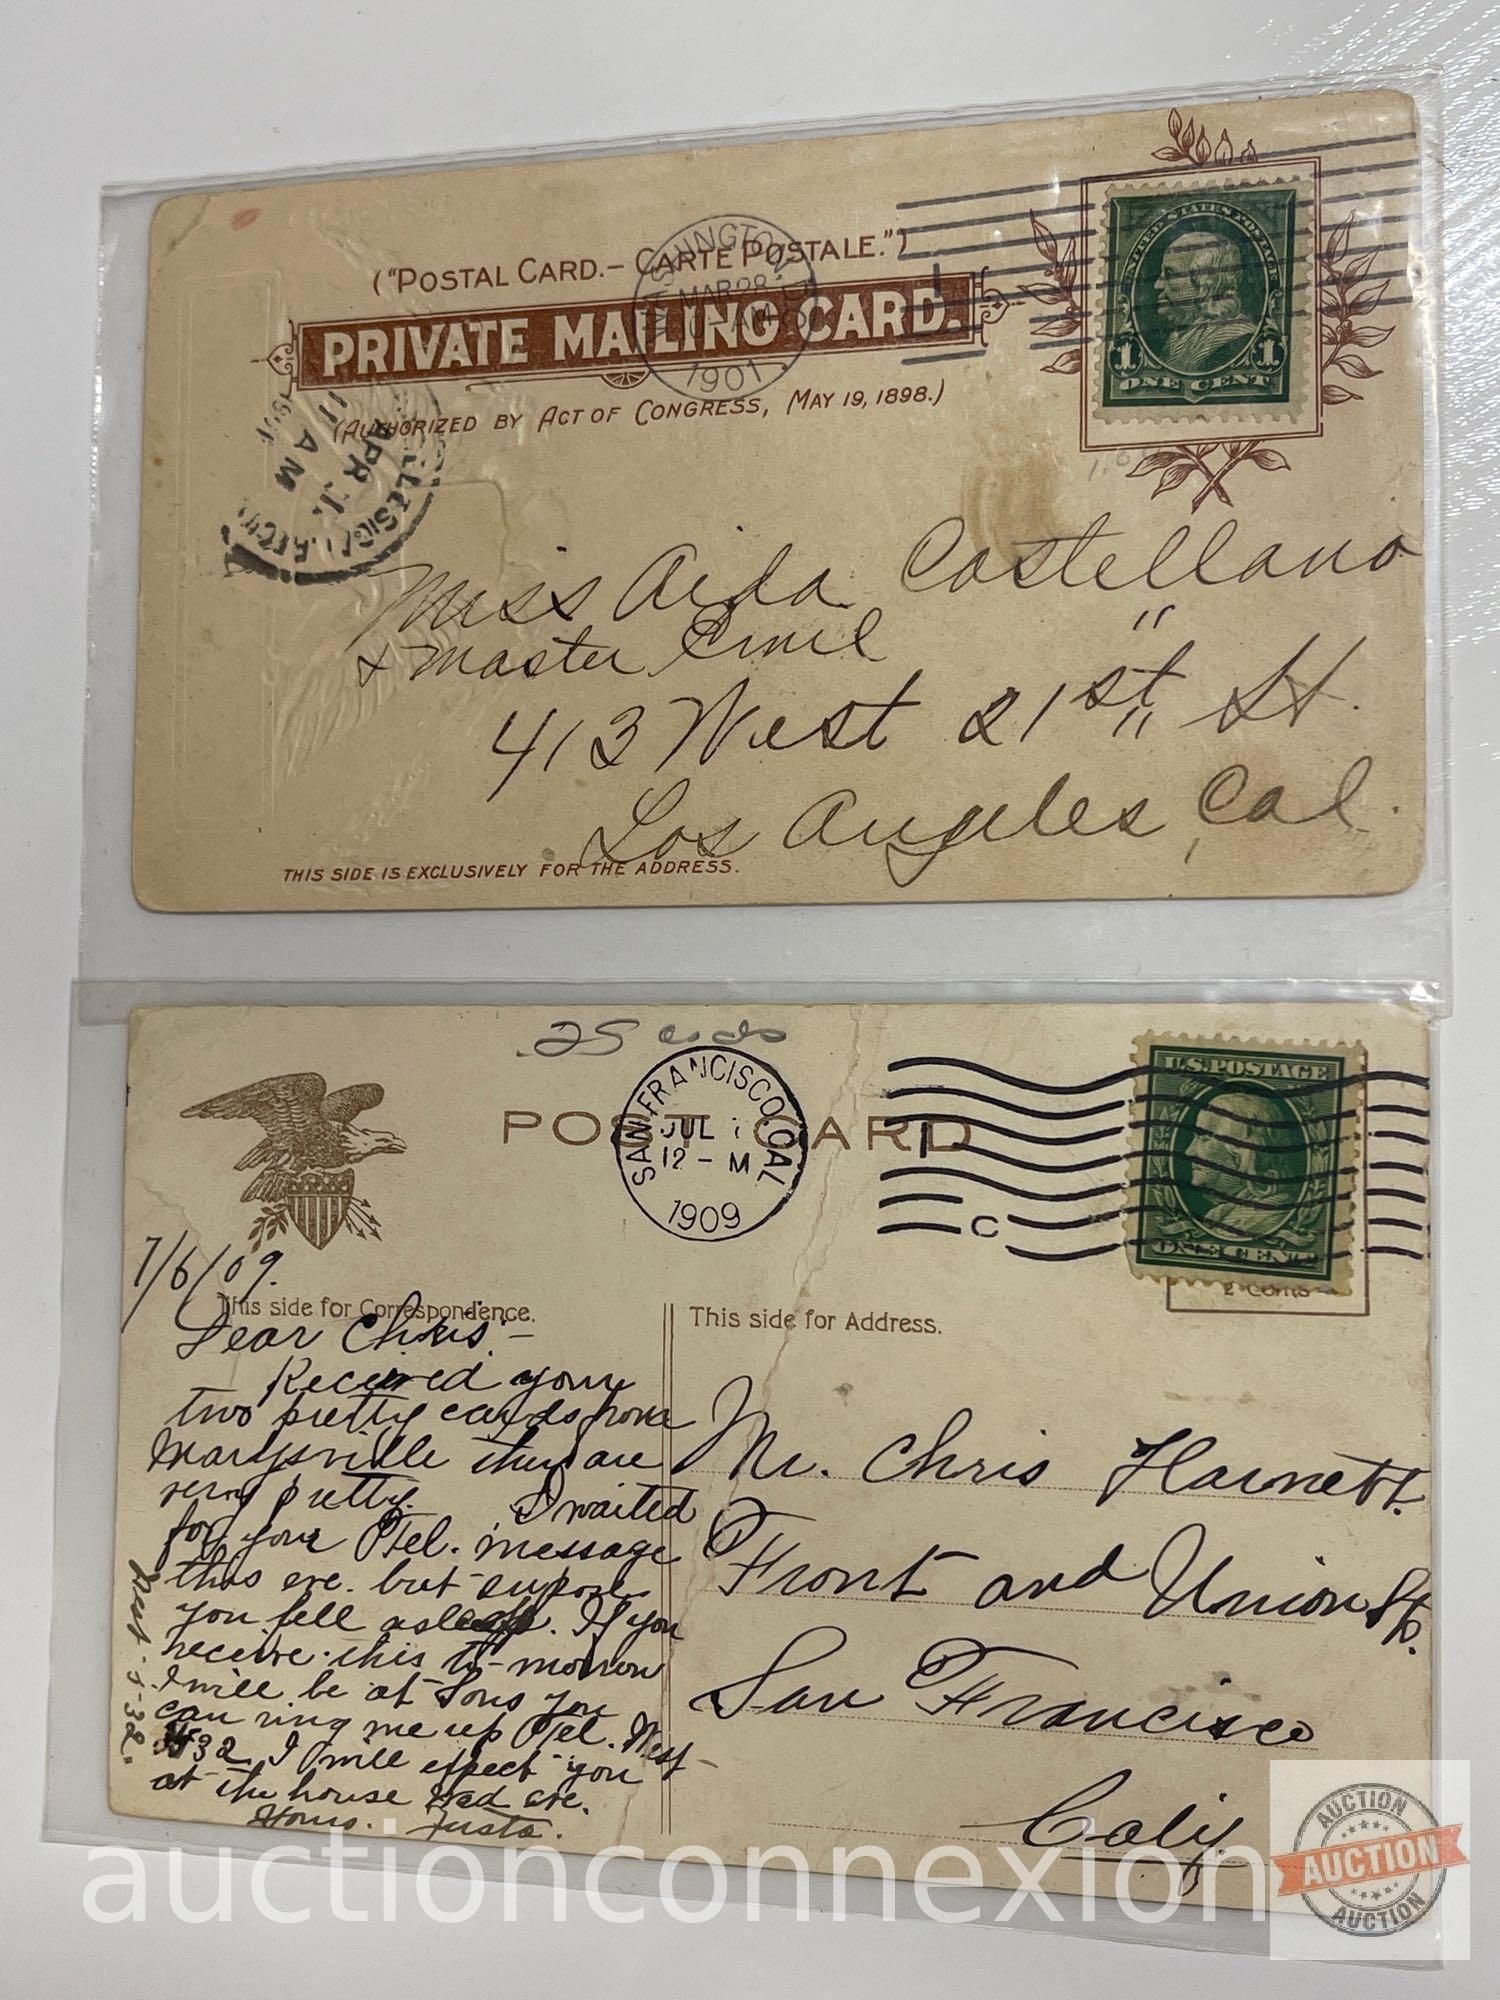 ("POSTAL CARD.– CARTE POSTALE.")
PRIVATE MAILING CARD.
(AUTHORIZED BY ACT OF CONGRESS, MAY 19, 1898.)
WASHINGTON, D.C.
MAR 28
10-AM
1901
APR 1
11 AM
1901
UNITED STATES POSTAGE
1 1
ONE CENT
Miss Aida Costellano
& Master Emil "
413 West 21st St.
Los Angeles, Cal.
THIS SIDE IS EXCLUSIVELY FOR THE ADDRESS.
.25
POST CARD
SAN FRANCISCO, CAL
JUL 7
12 - M
1909
C
U.S. POSTAGE
ONE CENT
7/6/09.
This side for Correspondence.
This side for Address.
Dear Chris:–
Received your
two pretty cards from
Marysville they are
very pretty. I waited
for your Tel. message
this eve. but supose
you fell asleep. If you
receive this to-morrow
I will be at you
can ring me up Tel. West
I will expect you
at the house eve.
Yours.
Mr. Chris Harnett.
Front and Union Sts.
San Francisco
Calif.
auctionconnexion
AUCTION
AUCTION
AUCTION